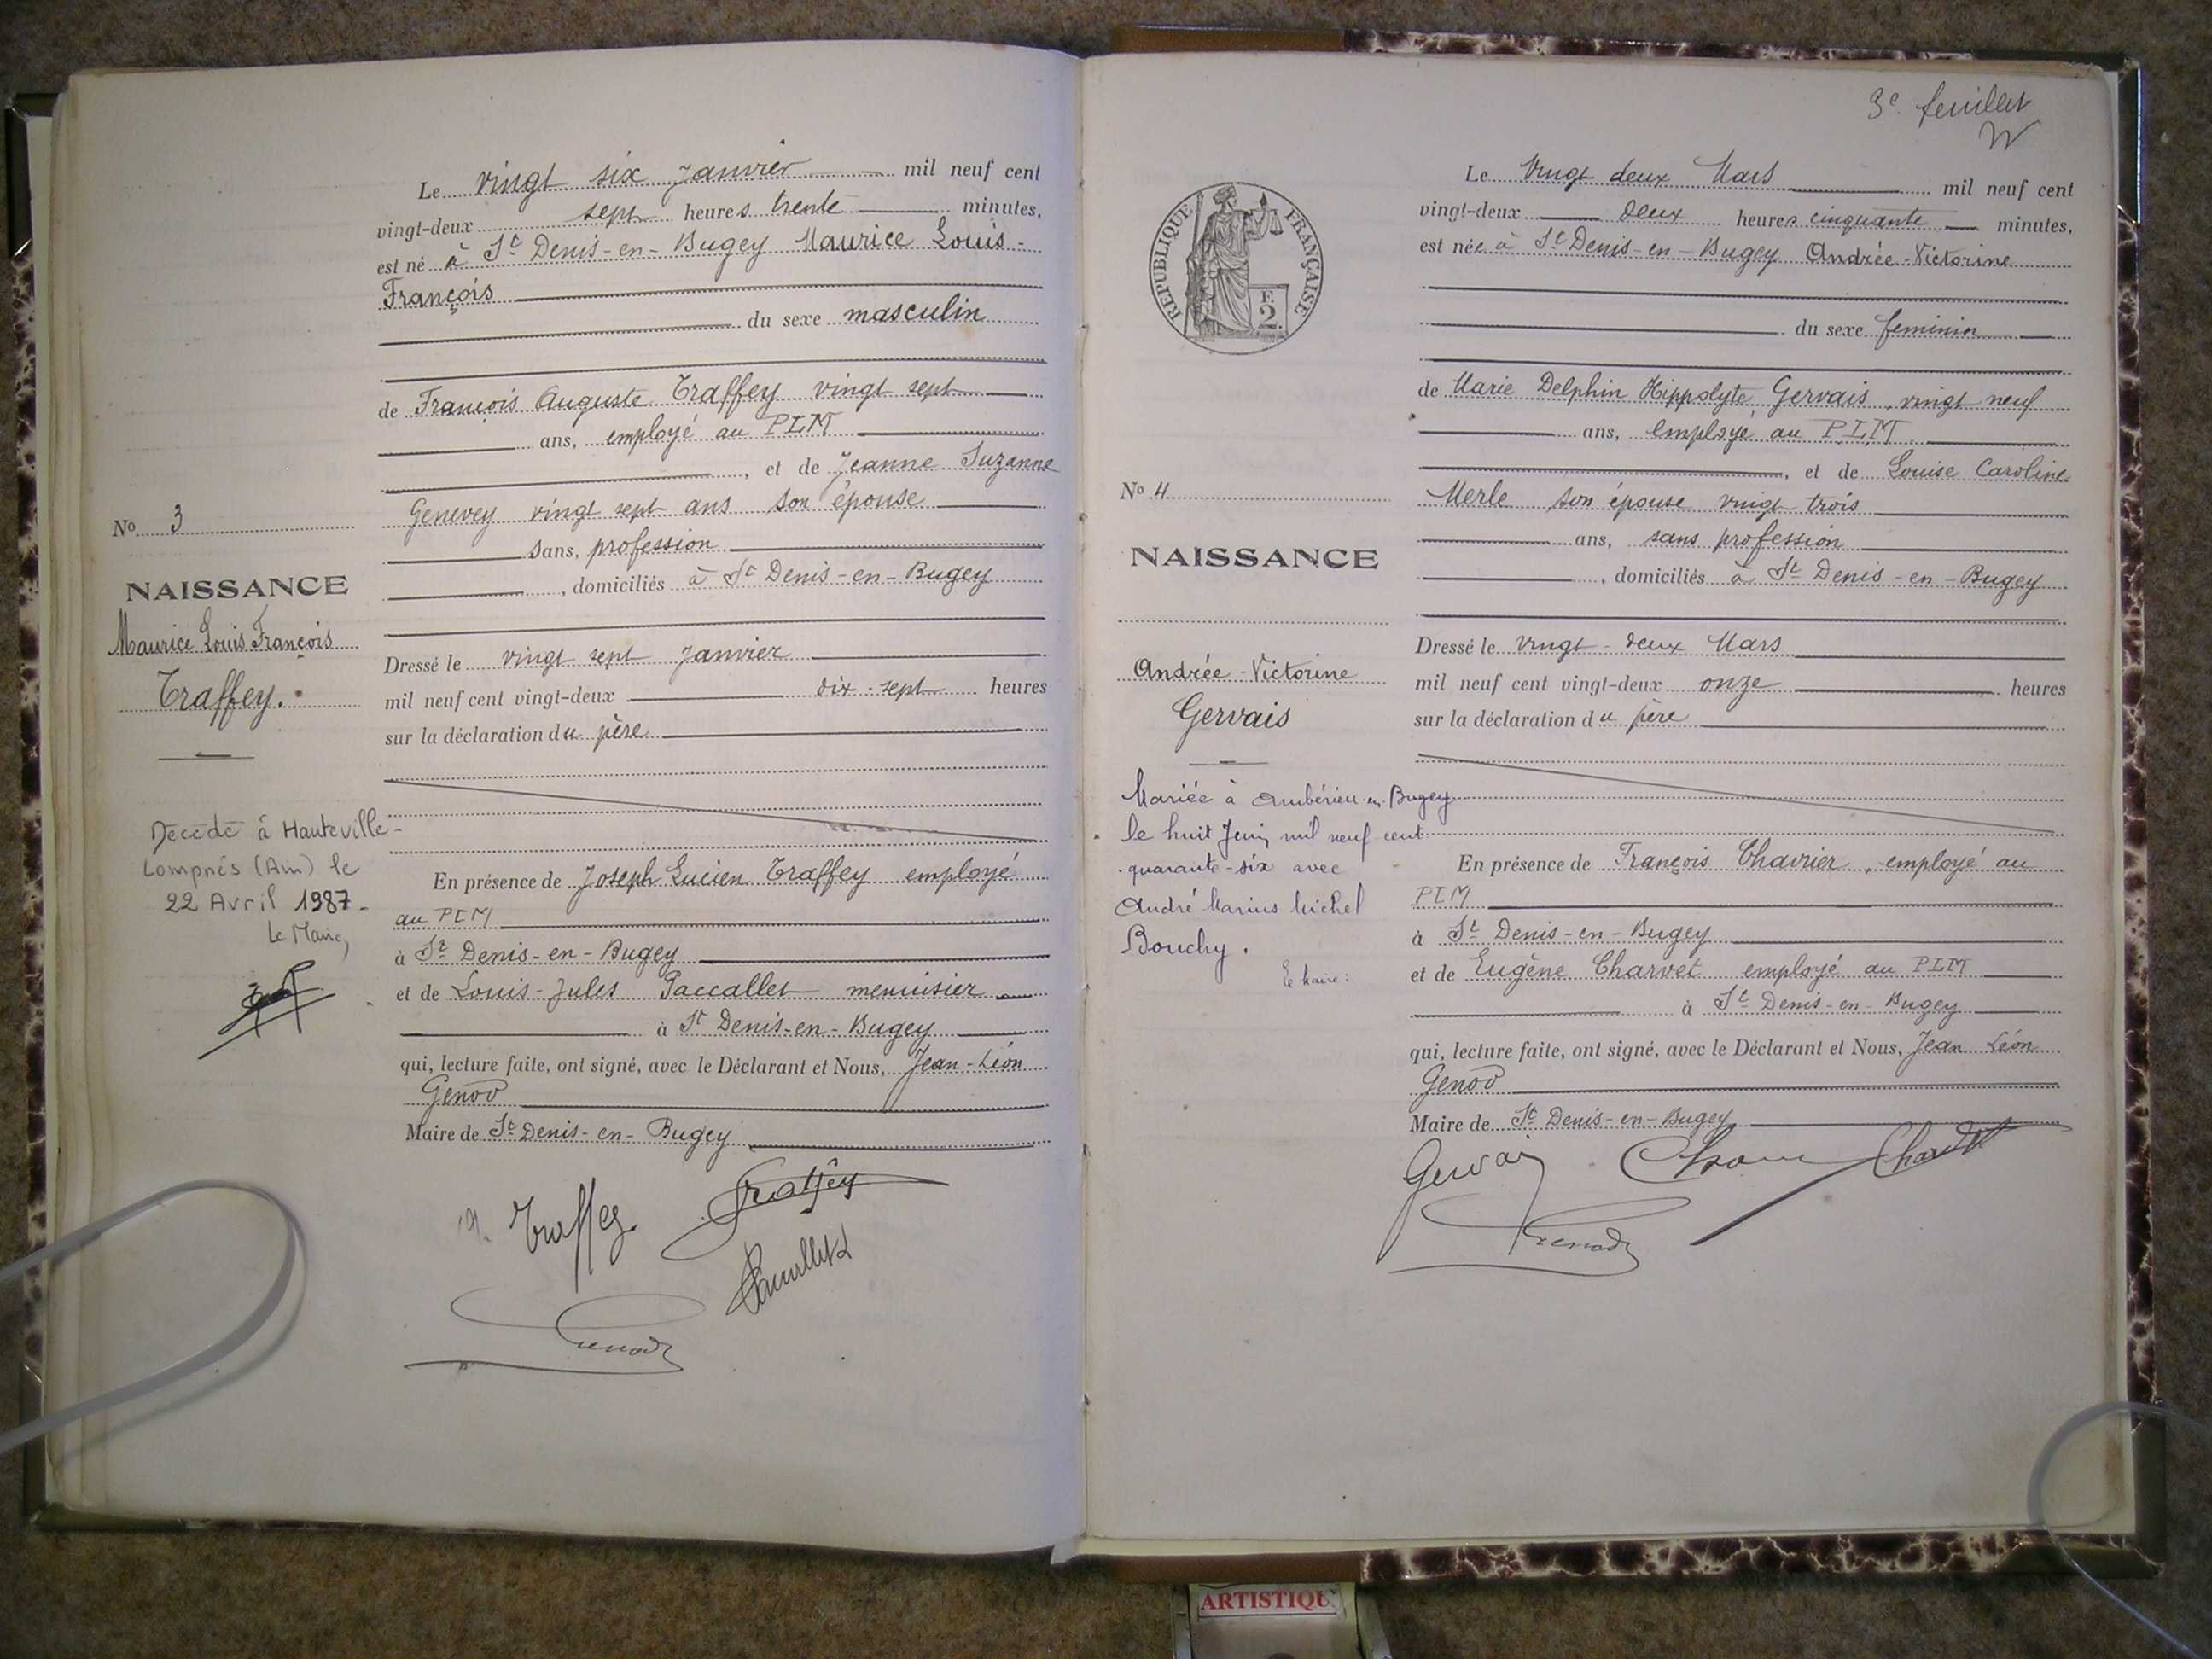 Le vingt six Janvier mil neuf cent
vingt-deux sept heures trente minutes,
est né à St Denis-en-Bugey Maurice Louis-
François
du sexe masculin
de François Auguste Traffey vingt sept
ans, employé au PLM
, et de Jeanne Suzanne
Genevey vingt sept ans son épouse
sans, profession
, domiciliés à St Denis-en-Bugey
Dressé le vingt sept Janvier
mil neuf cent vingt-deux dix-sept heures
sur la déclaration du père
En présence de Joseph Lucien Traffey employé
au PLM
à St Denis-en-Bugey
et de Louis-Jules Paccallet menuisier
à St Denis-en-Bugey
qui, lecture faite, ont signé, avec le Déclarant et Nous, Jean-Léon
Genod
Maire de St Denis-en-Bugey
Traffey
No 3
NAISSANCE
Maurice Louis François
Traffey.
Décédé à Hauteville-
Lompnes (Ain) le
22 Avril 1987-
Le Maire,
3e feuillet
REPUBLIQUE FRANÇAISE
F.
2
Le Vingt deux Mars mil neuf cent
vingt-deux deux heures cinquante minutes,
est née à St Denis-en-Bugey Andrée-Victorine
du sexe feminin
de Marie Delphin Hippolyte Gervais, vingt neuf
ans, employé au P.L.M.
, et de Louise Caroline
Merle son épouse vingt trois
ans, sans profession
, domiciliés à St Denis-en-Bugey
Dressé le vingt-deux Mars
mil neuf cent vingt-deux onze heures
sur la déclaration du père
En présence de François Chavrier, employé au
PLM
à St Denis-en-Bugey
et de Eugène Charvet employé au PLM
à St Denis-en-Bugey
qui, lecture faite, ont signé, avec le Déclarant et Nous, Jean Léon
Genod
Maire de St Denis-en-Bugey
Gervais
No 4
NAISSANCE
Andrée-Victorine
Gervais
Mariée à Ambérieu-en-Bugey
le huit Juin mil neuf cent
quarante-six avec
André Marius Michel
Bouchy.
Le Maire:
ARTISTIQU